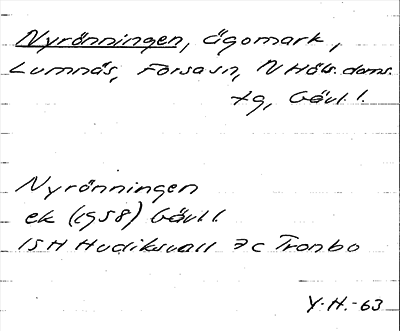 Nyrönningen, ägomark,
Lumnäs, Forsa sn, N Häls. doms.
tg, Gävl. l.
Nyrönningen
ek (1958) Gävl l
15H Hudiksvall 7c Tronbo
Y.H.-63